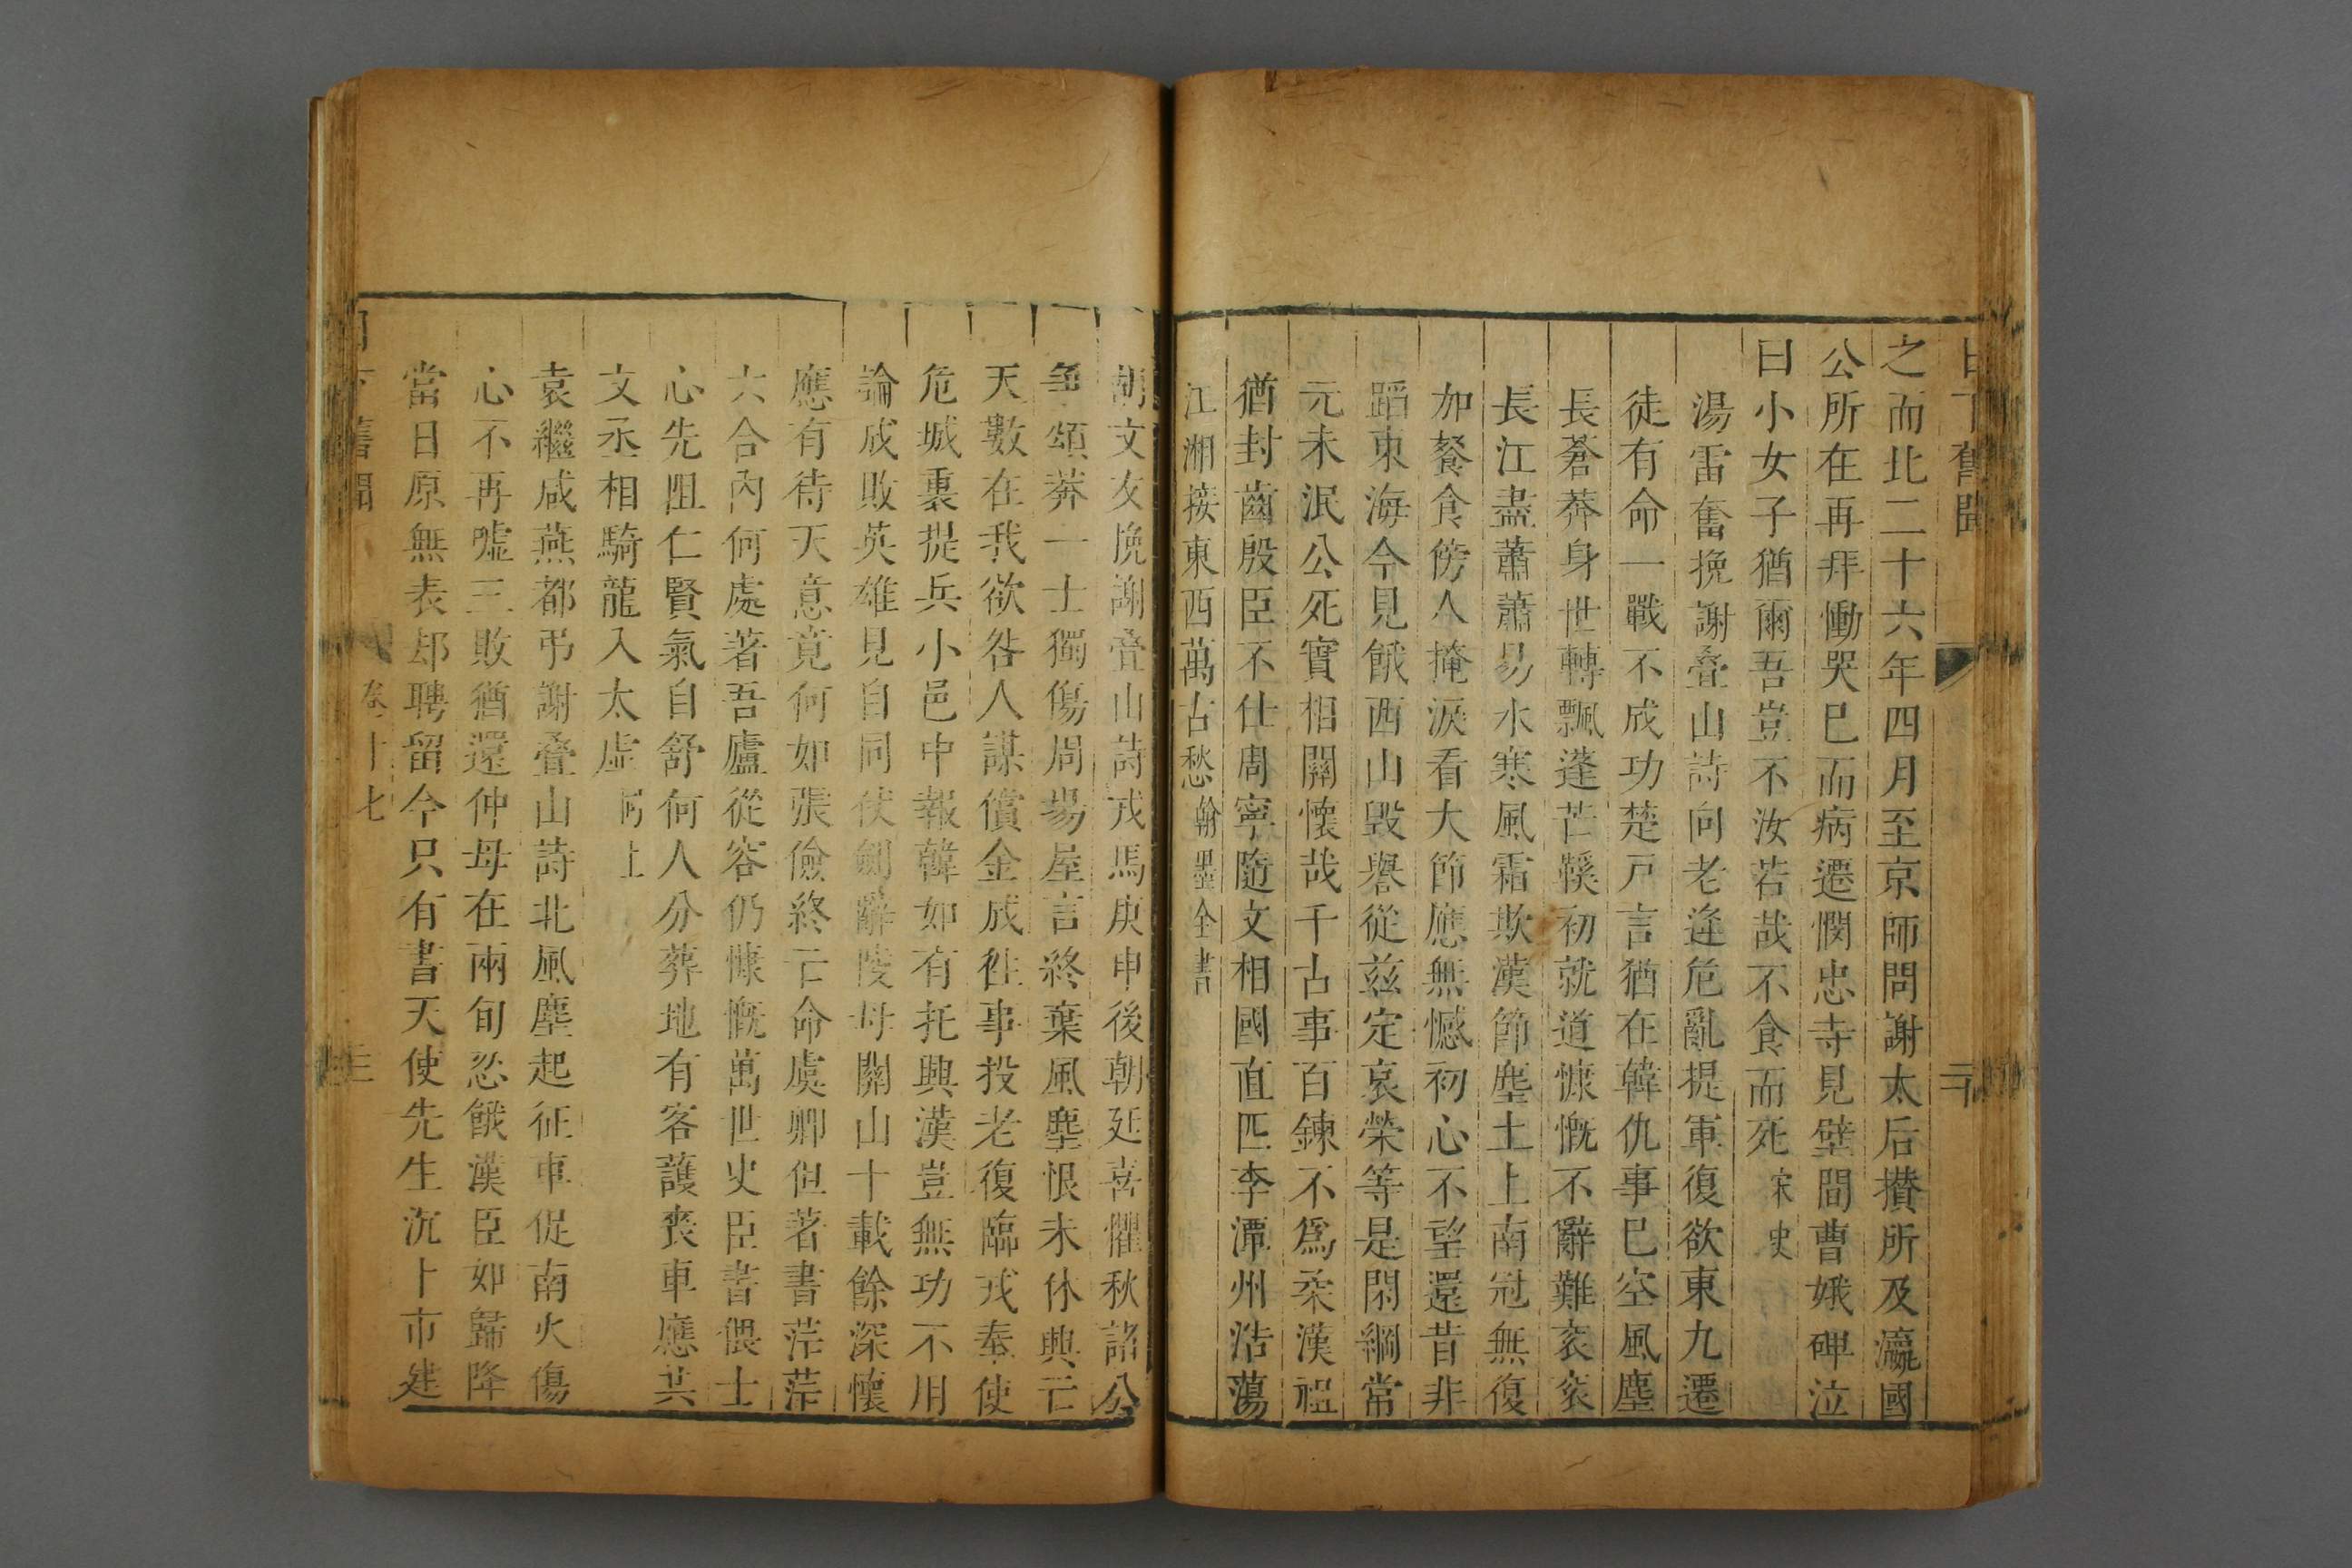 日下舊聞
之而北二十六年四月至京師問謝太后攢所及瀛國
公所在再拜慟哭已而病遷憫忠寺見壁間曹娥碑泣
曰小女子猶爾吾豈不汝若哉不食而死宋史
湯雷奮挽謝疊山詩向老逢危亂提軍復欲東九遷
徒有命一戰不成功楚戸言猶在韓仇事已空風塵
長蒼莽身世轉飄蓬芒鞵初就道慷慨不辭難衮衮
長江盡蕭蕭易水寒風霜欺漢節塵土上南冠無復
加餐食傍人掩淚看大節應無憾初心不望還昔非
蹈東海今見餓西山毀譽從兹定哀榮等是閑綱常
元未泯公死實相關懷哉千古事百鍊不爲柔漢祖
猶封齒殷臣不仕周寧隨文相國直匹李潭州浩蕩
江湘接東西萬古愁翰墨全書
胡文友挽謝疊山詩戎馬庚申後朝廷喜懼秋諂公
爭頌莽一士獨傷周場屋言終棄風塵恨未休興亡
天數在我欲咎人謀償金成徃事投老復臨戎奉使
危城裏提兵小邑中報韓如有托興漢豈無功不用
論成敗英雄見自同伏劍辭陵母關山十載餘深懷
應有待天意竟何如張儉終亡命虞卿但著書茫茫
六合內何處著吾廬從容仍慷慨萬世史臣書偎士
心先阻仁賢氣自舒何人分葬地有客護喪車應共
文丞相騎龍入太虛同上
袁繼咸燕都弔謝疊山詩北風塵起征車促南火傷
心不再噓三敗猶還仲母在兩旬忍餓漢臣如歸降
當日原無表却聘留今只有書天使先生沉卜市建
日下舊聞 卷十七